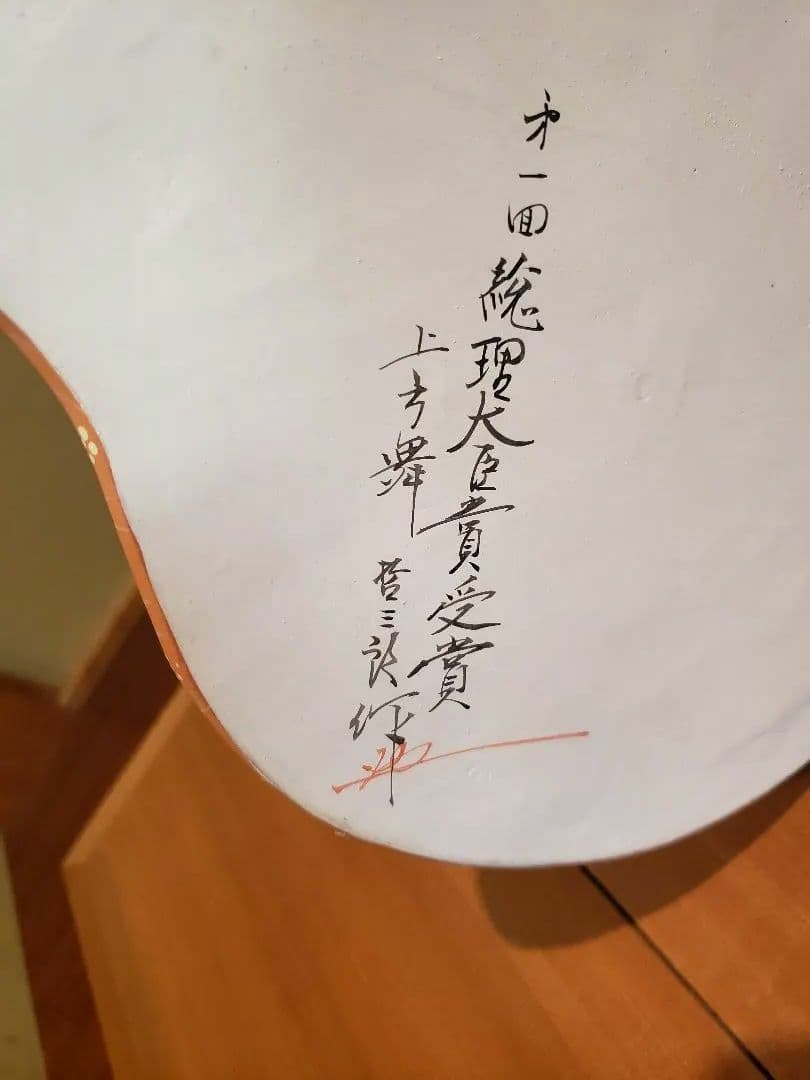 第一回総理大臣賞受賞
上方舞 哲三郎作